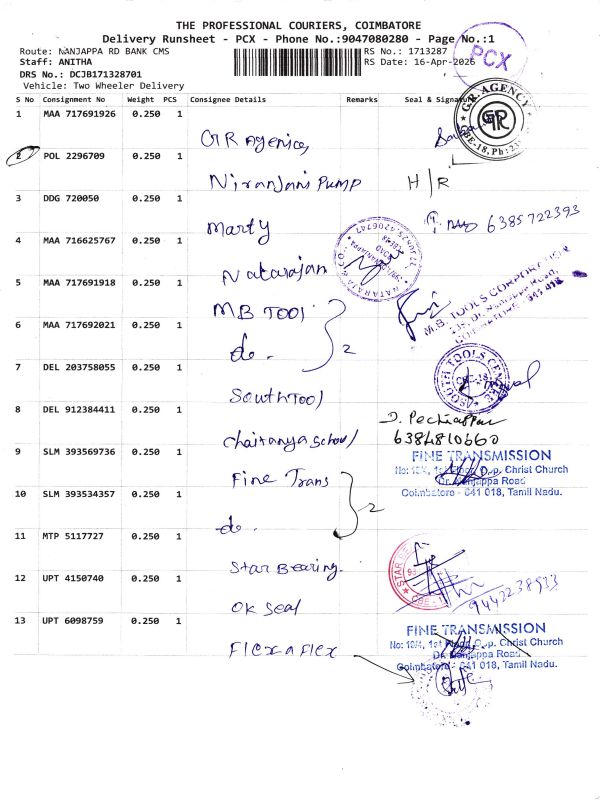 THE PROFESSIONAL COURIERS, COIMBATORE
Delivery Runsheet - PCX - Phone No.:9047080280 - Page No.:1
Route: NANJAPPA RD BANK CMS
RS No.: 1713287
Staff: ANITHA
RS Date: 16-Apr-2026
PCX
DRS No.: DCJB171328701
Vehicle: Two Wheeler Delivery
S No Consignment No Weight PCS Consignee Details Remarks Seal & Signature
1 MAA 717691926 0.250 1 GR Agenices
G.R. AGENCY
GR
2 POL 2296709 0.250 1 Niranjani Pump H/R
3 DDG 720050 0.250 1 Marty 6385722393
4 MAA 716625767 0.250 1 Natarajan
5 MAA 717691918 0.250 1 MB TOOl
M.B. TOOLS CORPORATION
6 MAA 717692021 0.250 1 do. 2
7 DEL 203758055 0.250 1 South Tool
SOUTH TOOLS CENTRE
8 DEL 912384411 0.250 1 Chaitanya School
6384810660
9 SLM 393569736 0.250 1 Fine Trans
FINE TRANSMISSION
No: 10/4, 1st Floor, Opp. Christ Church
Dr. Nanjappa Road
Coimbatore - 641 018, Tamil Nadu.
10 SLM 393534357 0.250 1 do. 2
11 MTP 5117727 0.250 1 Star Bearing.
12 UPT 4150740 0.250 1 OK Seal
13 UPT 6098759 0.250 1 Flex a Flex
FINE TRANSMISSION
No: 10/4, 1st Floor, Opp. Christ Church
Dr. Nanjappa Road
Coimbatore - 641 018, Tamil Nadu.